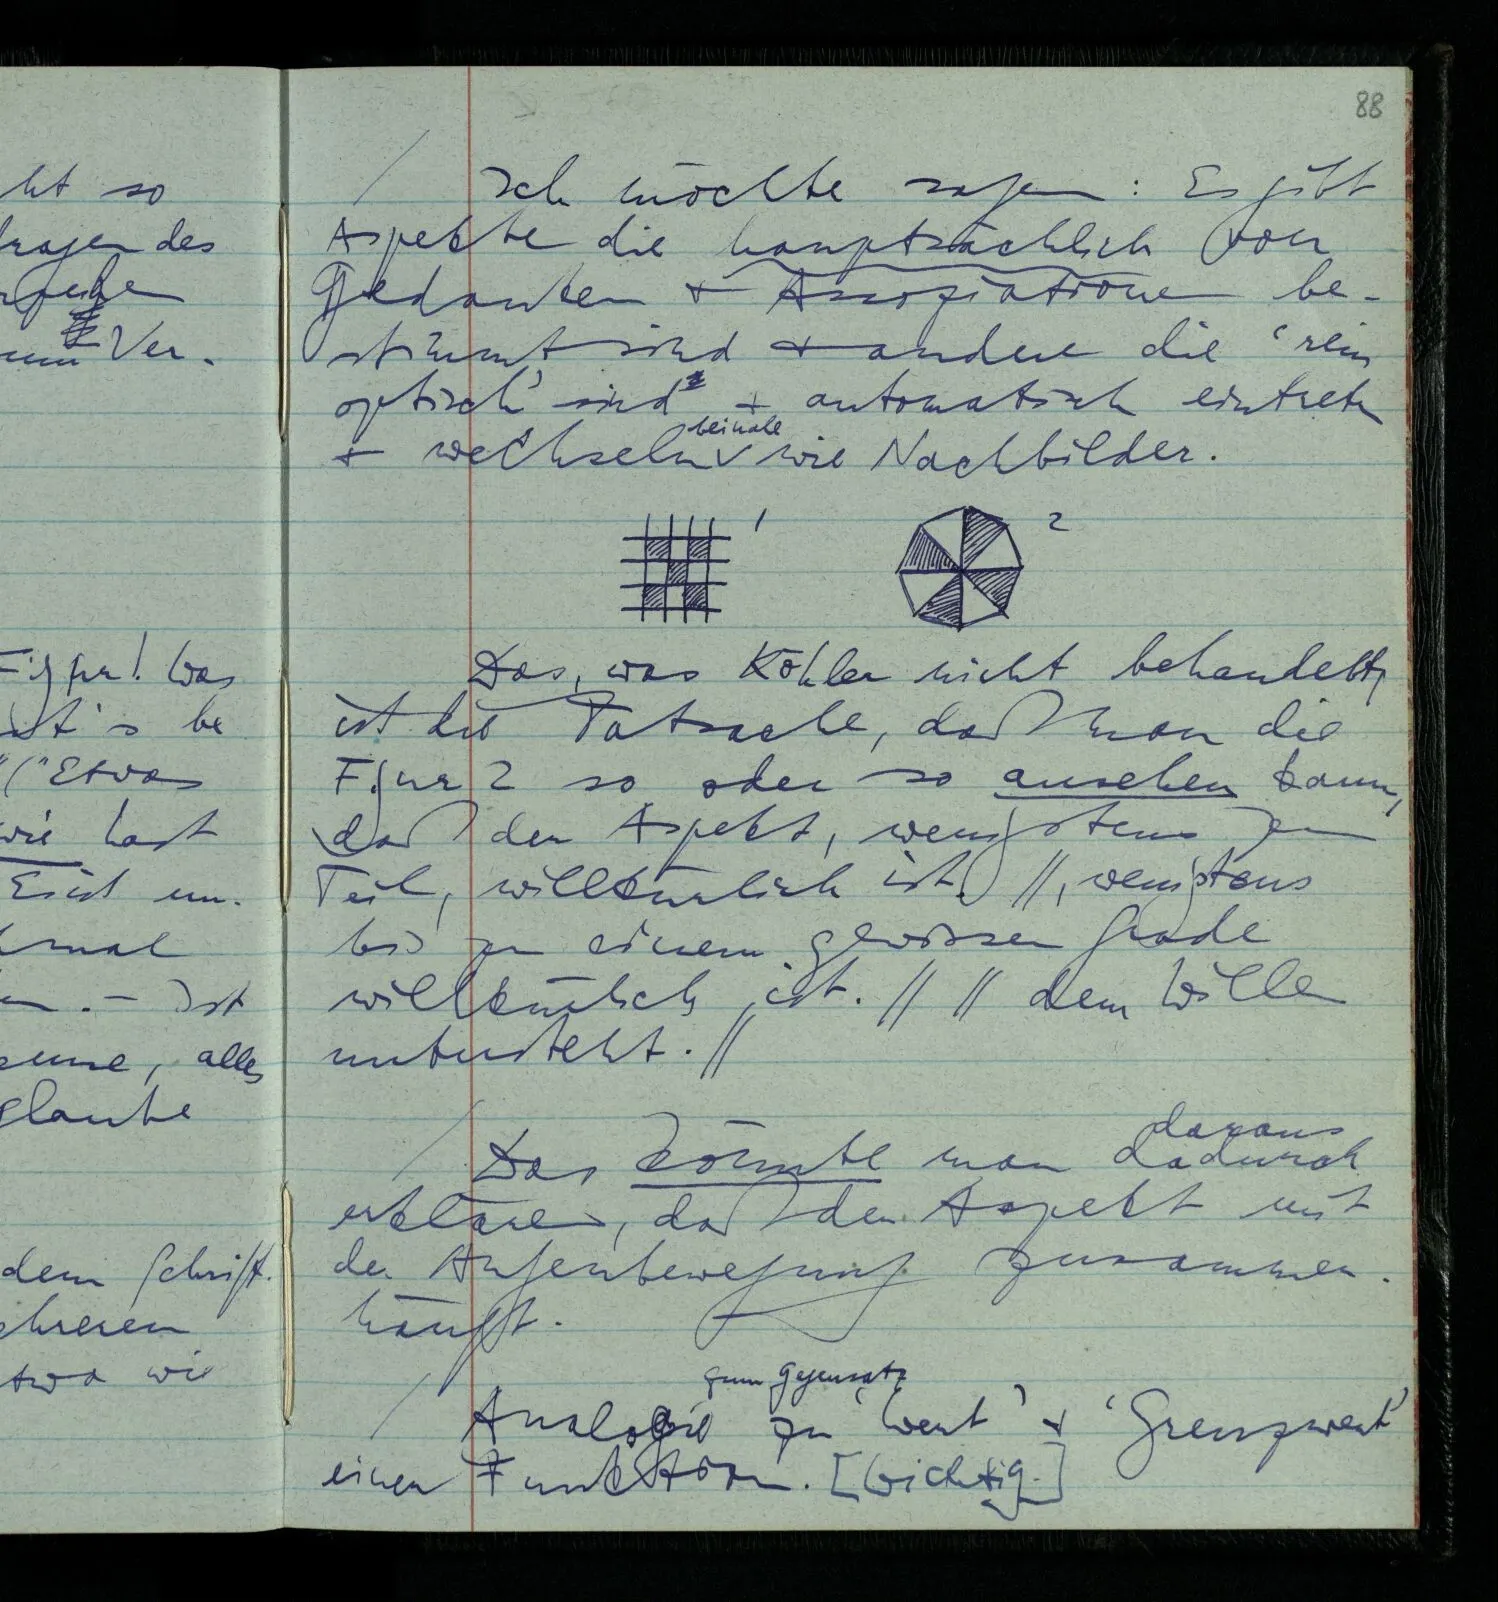 88
ht so
fragen des
Ver-
Figur! Was
ist's be
("Etwas
wie hast
Es ist un-
mal
n. – Ist
alles
glaube
dem Schrift-
hreren
etwa wie
/ Ich möchte sagen: Es gibt
Aspekte die hauptsächlich von
Gedanken + Assoziationen be-
stimmt sind + andere die ‘rein
optisch’ sind + automatisch eintreten
+ wechseln beinahe wie Nachbilder.
1 2
Das, was Köhler nicht behandelt,
ist die Tatsache, daß man die
Figur 2 so oder so ansehen kann,
daß der Aspekt, wenigstens zum
Teil, willkürlich ist. //, wenigstens
bis zu einem gewissen Grade
willkürlich ist. // // dem Willen
untersteht. //
daraus
/ Das könnte man dadurch
erklären, daß der Aspekt mit
der Augenbewegung zusammen-
hängt.
zum Gegensatz
/ Analogie zu ‘Wert’ + ‘Grenzwert’
einer Funktion. [Wichtig.]